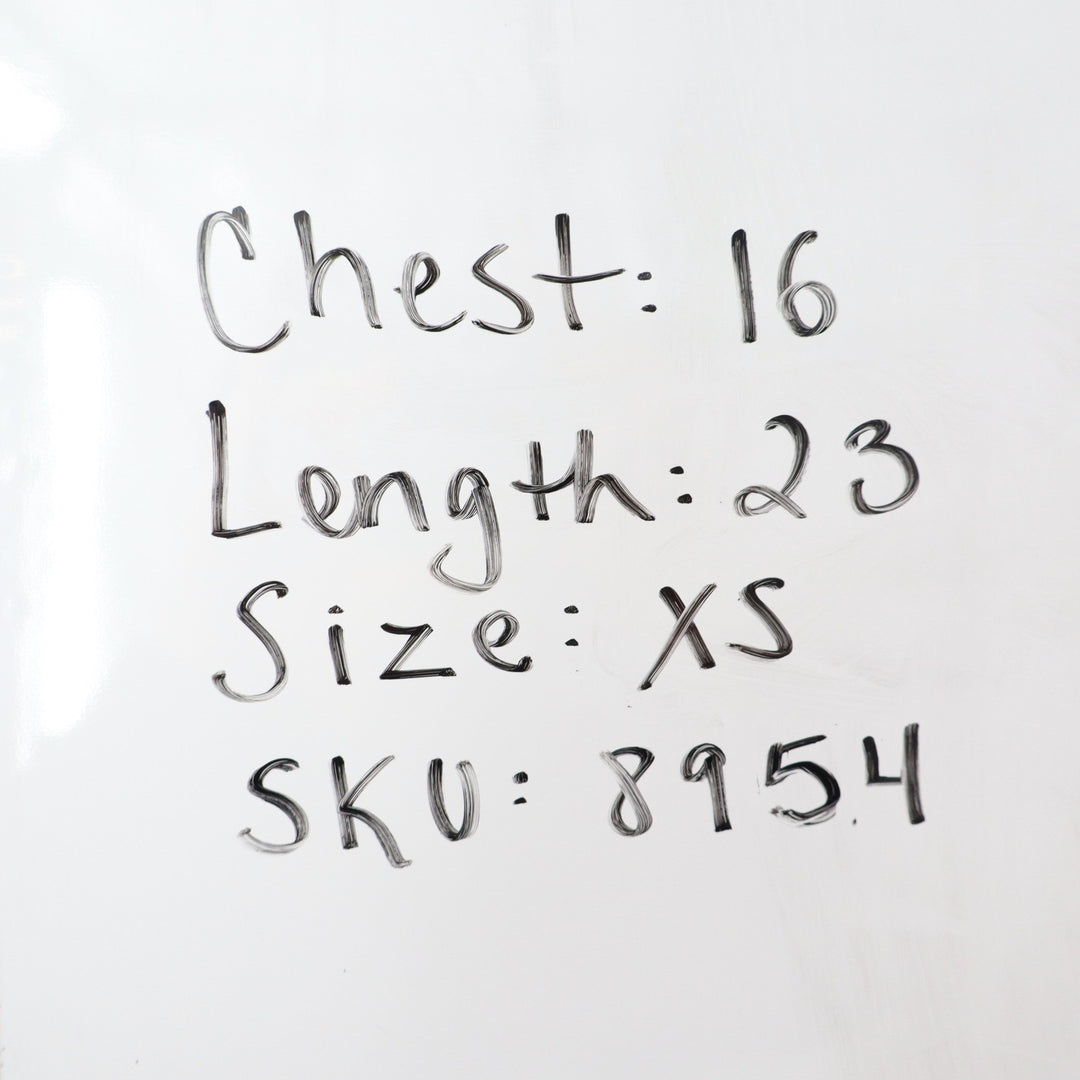 Chest: 16
Length: 23
Size: XS
SKU: 8954